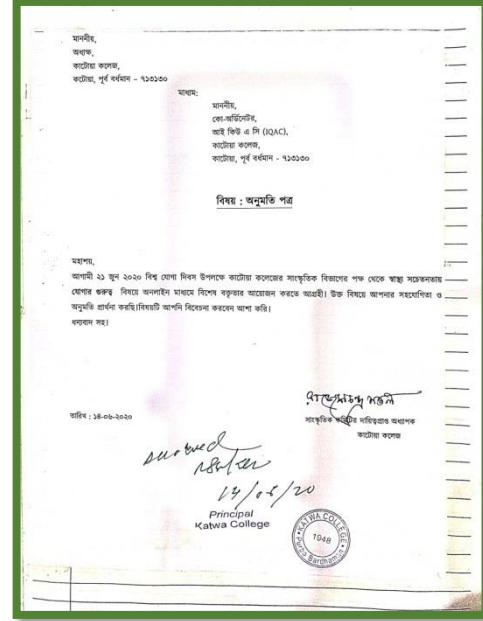 মাননীয়,
অধ্যক্ষ,
কাটোয়া কলেজ,
কটোয়া, পূর্ব বর্ধমান – ৭১৩১৩০
মাধ্যম:
মাননীয়,
কো-অর্ডিনেটর,
আই কিউ এ সি (IQAC),
কাটোয়া কলেজ,
কাটোয়া, পূর্ব বর্ধমান - ৭১৩১৩০
বিষয় : অনুমতি পত্র
মহাশয়,
আগামী ২১ জুন ২০২০ বিশ্ব যোগা দিবস উপলক্ষে কাটোয়া কলেজের সাংস্কৃতিক বিভাগের পক্ষ থেকে স্বাস্থ্য সচেতনতায়
যোগার গুরুত্ব বিষয়ে অনলাইন মাধ্যমে বিশেষ বক্তৃতার আয়োজন করতে আগ্রহী। উক্ত বিষয়ে আপনার সহযোগিতা ও
অনুমতি প্রার্থনা করছি।বিষয়টি আপনি বিবেচনা করবেন আশা করি।
ধন্যবাদ সহ।
তারিখ : ১৪-০৬-২০২০
সাংস্কৃতিক কমিটির দায়িত্বপ্রাপ্ত অধ্যাপক
কাটোয়া কলেজ
14/06/20
Principal
Katwa College
KATWA COLLEGE
1948
Purba Bardhaman